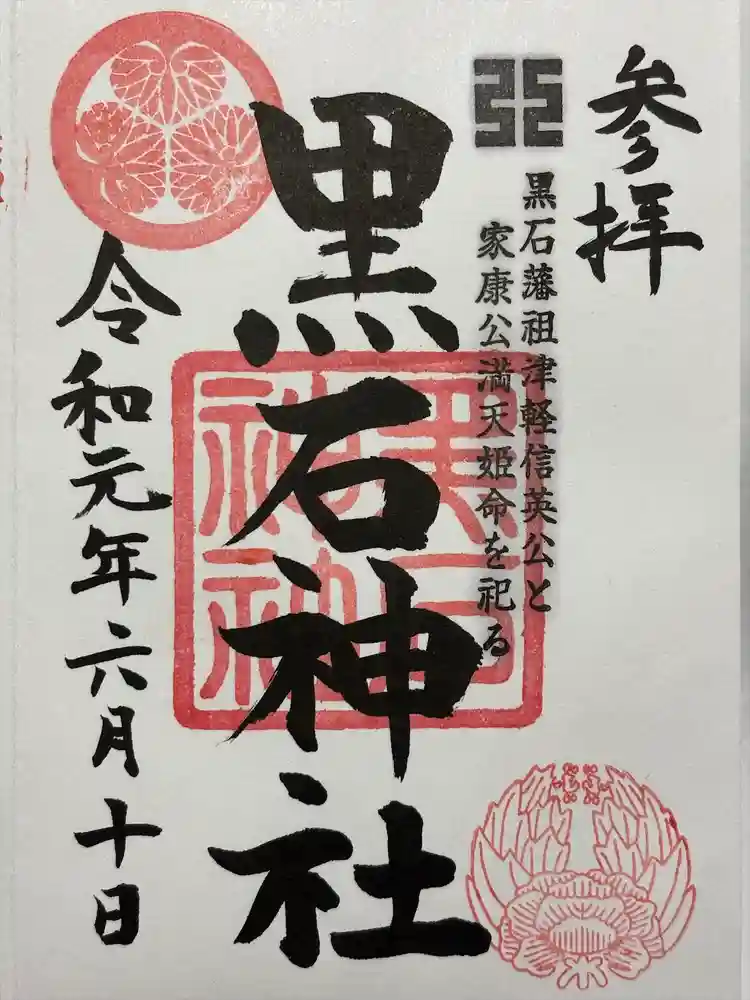 参拝
黒石藩祖津軽信英公と
家康公満天姫命を祀る
黒石神社
黒石
神社
令和元年六月十日